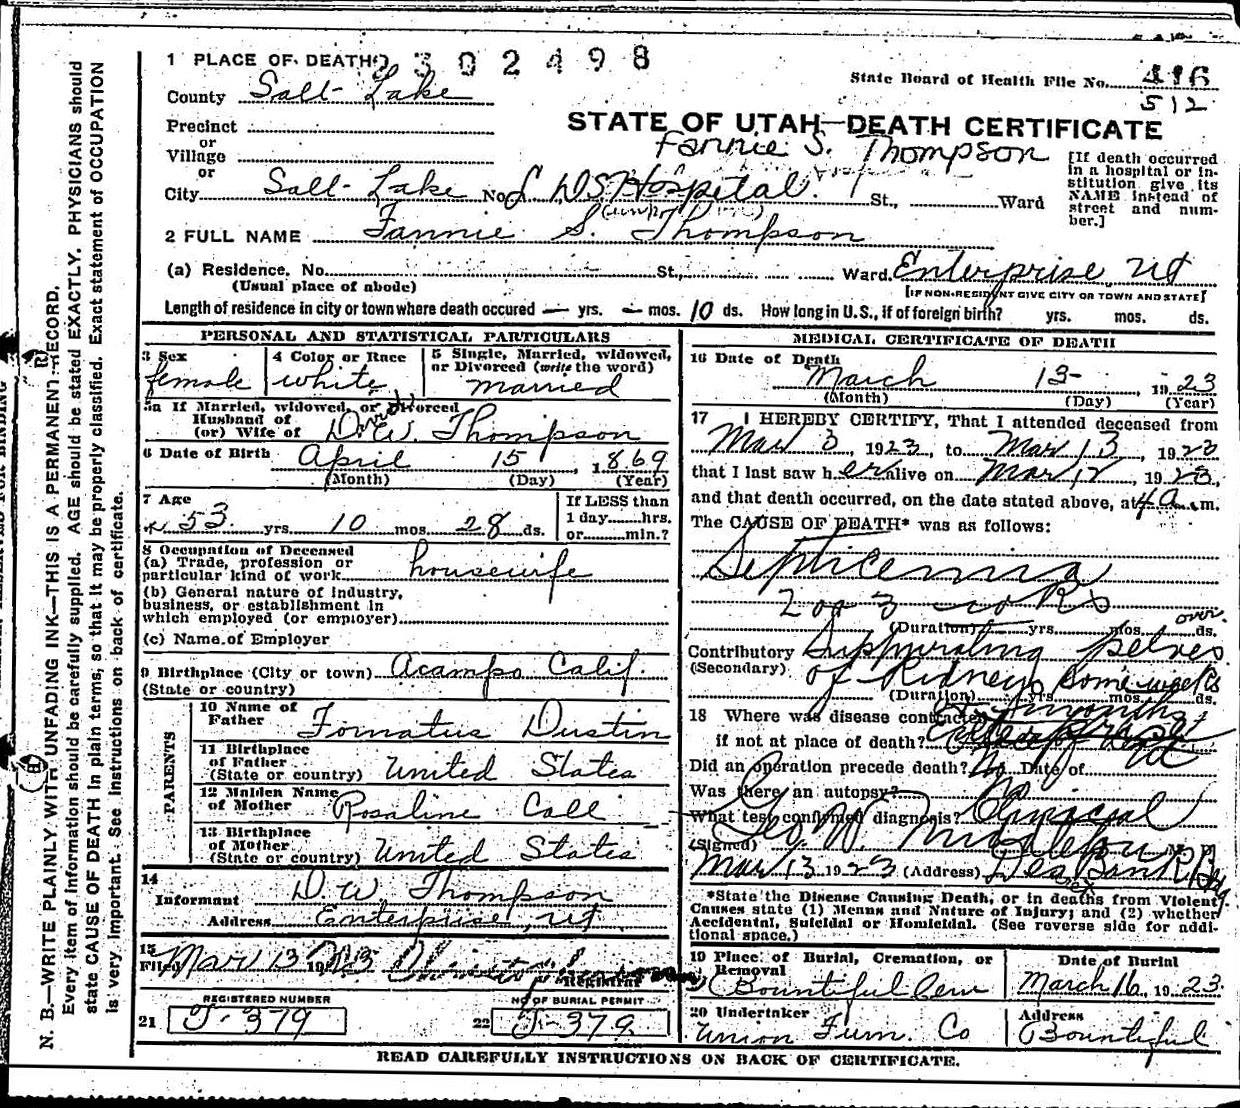 1 PLACE OF DEATH 2302498
State Board of Health File No. 416
County Salt Lake
512
STATE OF UTAH—DEATH CERTIFICATE
Precinct
or
Village
or
Fannie S. Thompson
[If death occurred in a hospital or institution give its NAME instead of street and number.]
City Salt Lake No. L D S Hospital. St., Ward
2 FULL NAME Fannie S. Thompson
(a) Residence. No. St., Ward. Enterprise, Ut
(Usual place of abode) [IF NON-RESIDENT GIVE CITY OR TOWN AND STATE]
Length of residence in city or town where death occured — yrs. — mos. 10 ds. How long in U.S., if of foreign birth? yrs. mos. ds.
PERSONAL AND STATISTICAL PARTICULARS
3 Sex female
4 Color or Race white
5 Single, Married, widowed, or Divorced (write the word) married
5a If Married, widowed, or Divorced
Husband of
(or) Wife of D. W. Thompson
6 Date of Birth April 15, 1869
(Month) (Day) (Year)
7 Age 53 yrs. 10 mos. 28 ds.
If LESS than
1 day hrs.
or min.?
8 Occupation of Deceased
(a) Trade, profession or
particular kind of work housewife
(b) General nature of industry,
business, or establishment in
which employed (or employer)
(c) Name of Employer
9 Birthplace (City or town) Acampo Calif.
(State or country)
PARENTS
10 Name of
Father Fornatus Dustin
11 Birthplace
of Father
(State or country) United States
12 Maiden Name
of Mother Rosaline Call
13 Birthplace
of Mother
(State or country) United States
14
Informant D. W. Thompson
Address Enterprise, Ut
15
Filed Mar 13 1923
Registrar
REGISTERED NUMBER
21 J-379
NO OF BURIAL PERMIT
22 J-379
MEDICAL CERTIFICATE OF DEATH
16 Date of Death
March 13- 1923
(Month) (Day) (Year)
17 I HEREBY CERTIFY, That I attended deceased from
Mar 3 1923, to Mar 13, 1923
that I last saw her alive on Mar 12, 1923,
and that death occurred, on the date stated above, at 4 a. m.
The CAUSE OF DEATH* was as follows:
Septicemia
2 or 3 weeks
over
(Duration) yrs. mos. ds.
Contributory Suppurating pelves
(Secondary) of Kidneys some weeks
(Duration) yrs. mos. ds.
or months
18 Where was disease contracted
if not at place of death? Enterprise, Ut
Did an operation precede death? No Date of
Was there an autopsy? No
What test confirmed diagnosis? Clinical
(Signed) Geo. W. Middleton M. D.
Mar 13 1923 (Address) Des Bank Bldg
*State the Disease Causing Death, or in deaths from Violent
Causes state (1) Means and Nature of Injury; and (2) whether
Accidental, Suicidal or Homicidal. (See reverse side for additional space.)
19 Place of Burial, Cremation, or
Removal
Bountiful Cem
Date of Burial
March 16, 1923.
20 Undertaker
Union Furn. Co
Address
Bountiful
READ CAREFULLY INSTRUCTIONS ON BACK OF CERTIFICATE.
N. B.—WRITE PLAINLY WITH UNFADING INK—THIS IS A PERMANENT RECORD.
Every item of information should be carefully supplied. AGE should be stated EXACTLY. PHYSICIANS should
state CAUSE OF DEATH in plain terms, so that it may be properly classified. Exact statement of OCCUPATION
is very important. See instructions on back of certificate.